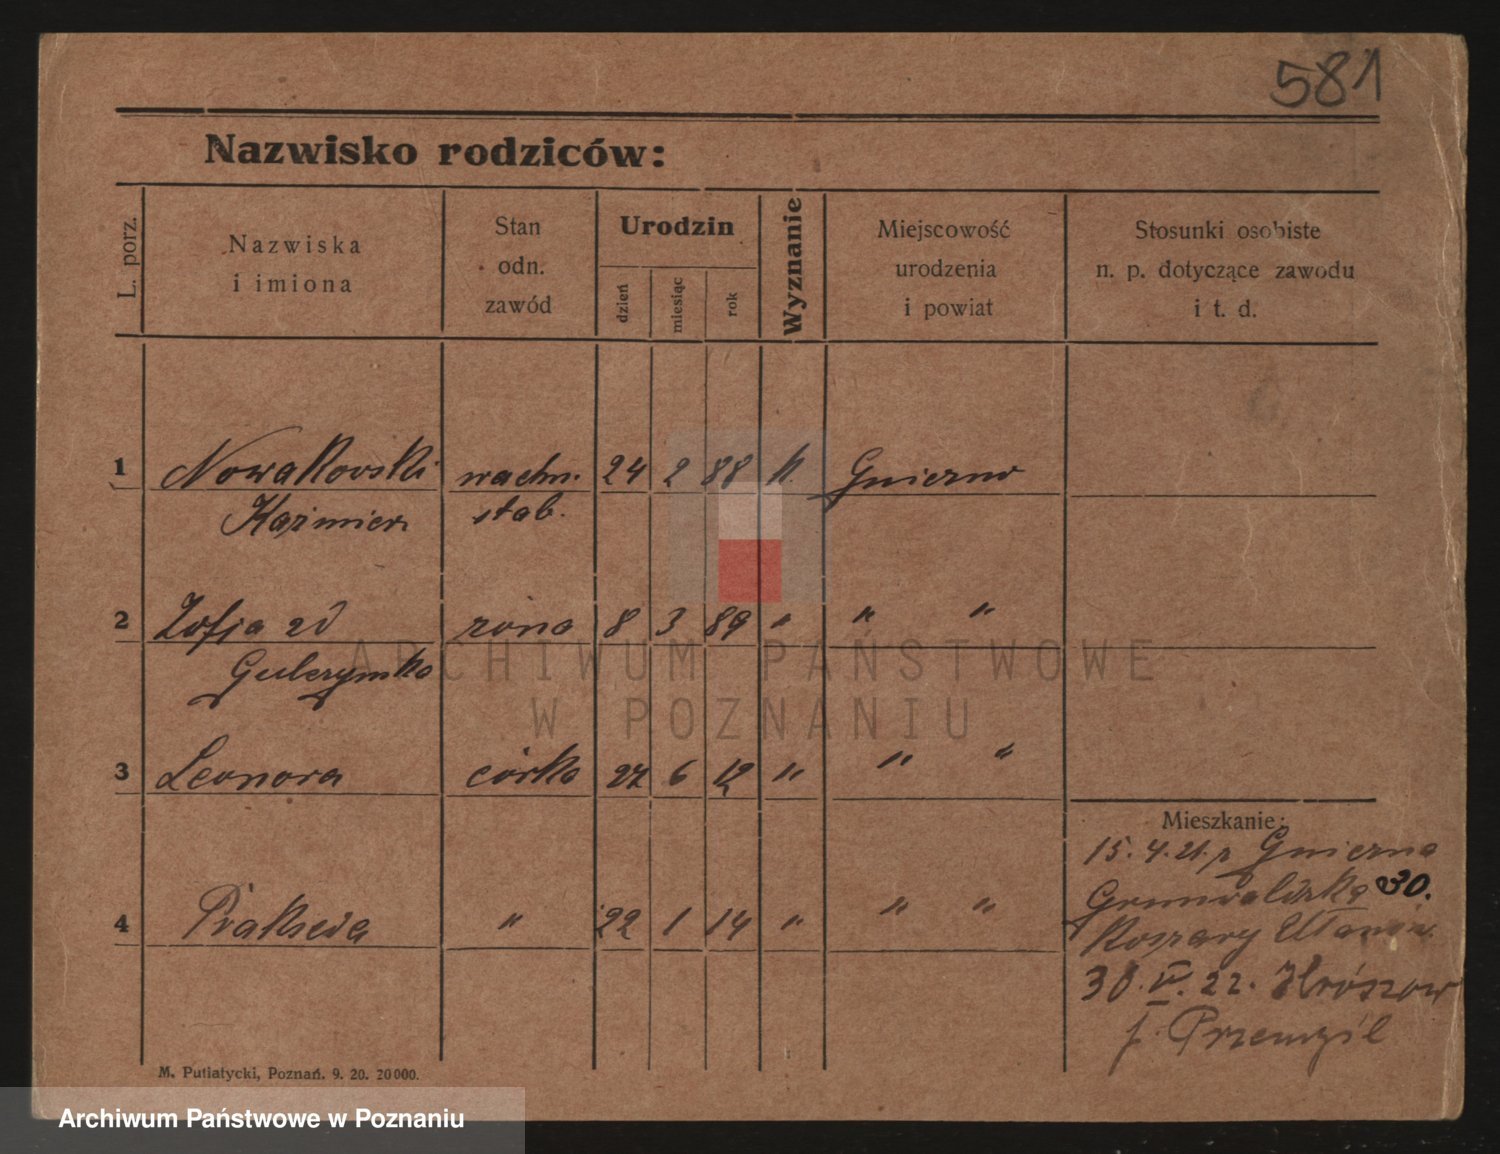 581
Nazwisko rodziców:
L. porz.
Nazwiska
i imiona
Stan
odn.
zawód
Urodzin
dzień
miesiąc
rok
Wyznanie
Miejscowość
urodzenia
i powiat
Stosunki osobiste
n. p. dotyczące zawodu
i t. d.
1 Nowakowski wachm. 24 2 88 k. Gniezno
Kaźmierz stab.
2 Zofja zd żona 8 3 89 " " "
Gulczynska
3 Leonora córka 27 6 12 " " "
4 Prakseda " 22 1 14 " " "
Mieszkanie:
15.4.21. z Gniezna
Grunwaldzka 30.
Koszary Ułanów.
30.V.22.
p. Przemyśl
M. Putiatycki, Poznań. 9. 20. 20000.
ARCHIWUM PAŃSTWOWE
W POZNANIU
Archiwum Państwowe w Poznaniu